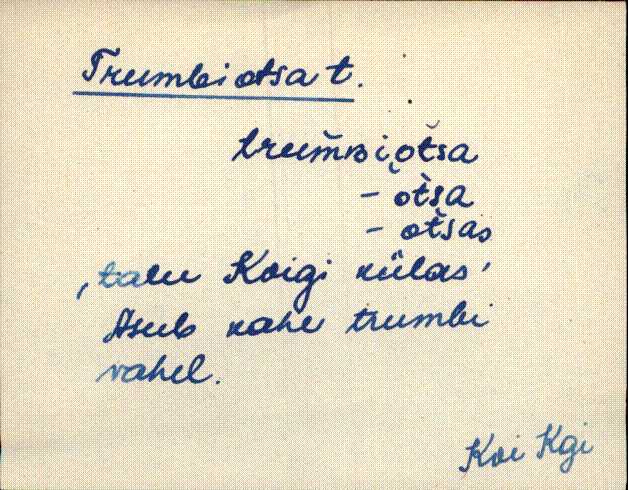 Trumbiotsa t.
trum̆ʙiot̆sa
- òt̆sa
- ot̆sas
‚talu Koigi külas'
Asub kahe trumbi
vahel.
Koi Kgi